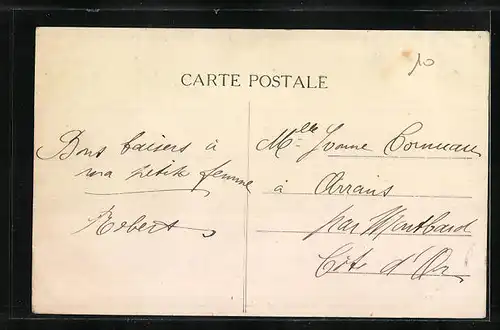 10
CARTE POSTALE
Bons baisers à
ma petite femme
Robert
Mlle Yvonne Cornuau
à Arrans
par Montbard
Côte d'Or